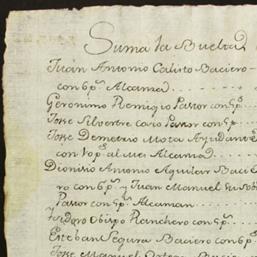 Suma la Buelta
Juan Antonio Calisto Baciero
con 6ps. Alcaman
Geronimo Remigio Pastor con 5ps.
Jose Silvestre Pastor con 5ps.
Jose Demetrio Mota Ayudante
con al Alcaman
Dionisio Antonio Aguilar Baci
ro con 6ps. y Juan Manuel
Pastor con 5ps. Alcaman
Ysidoro Obispo Ranchero con 5ps.
Esteban Segura Baciero con 6ps.
Jose Manuel